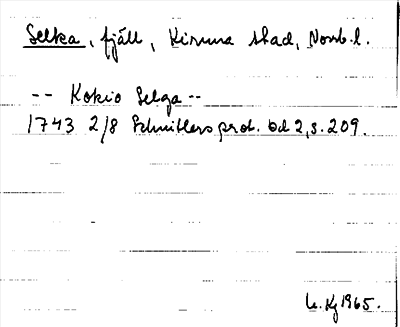 Selka, fjäll, Kiruna stad, Norrb. l.
-- Kokio Selga --
1743 2/8 Schnitlers prot. bd 2, s. 209.
U. Kj 1965.